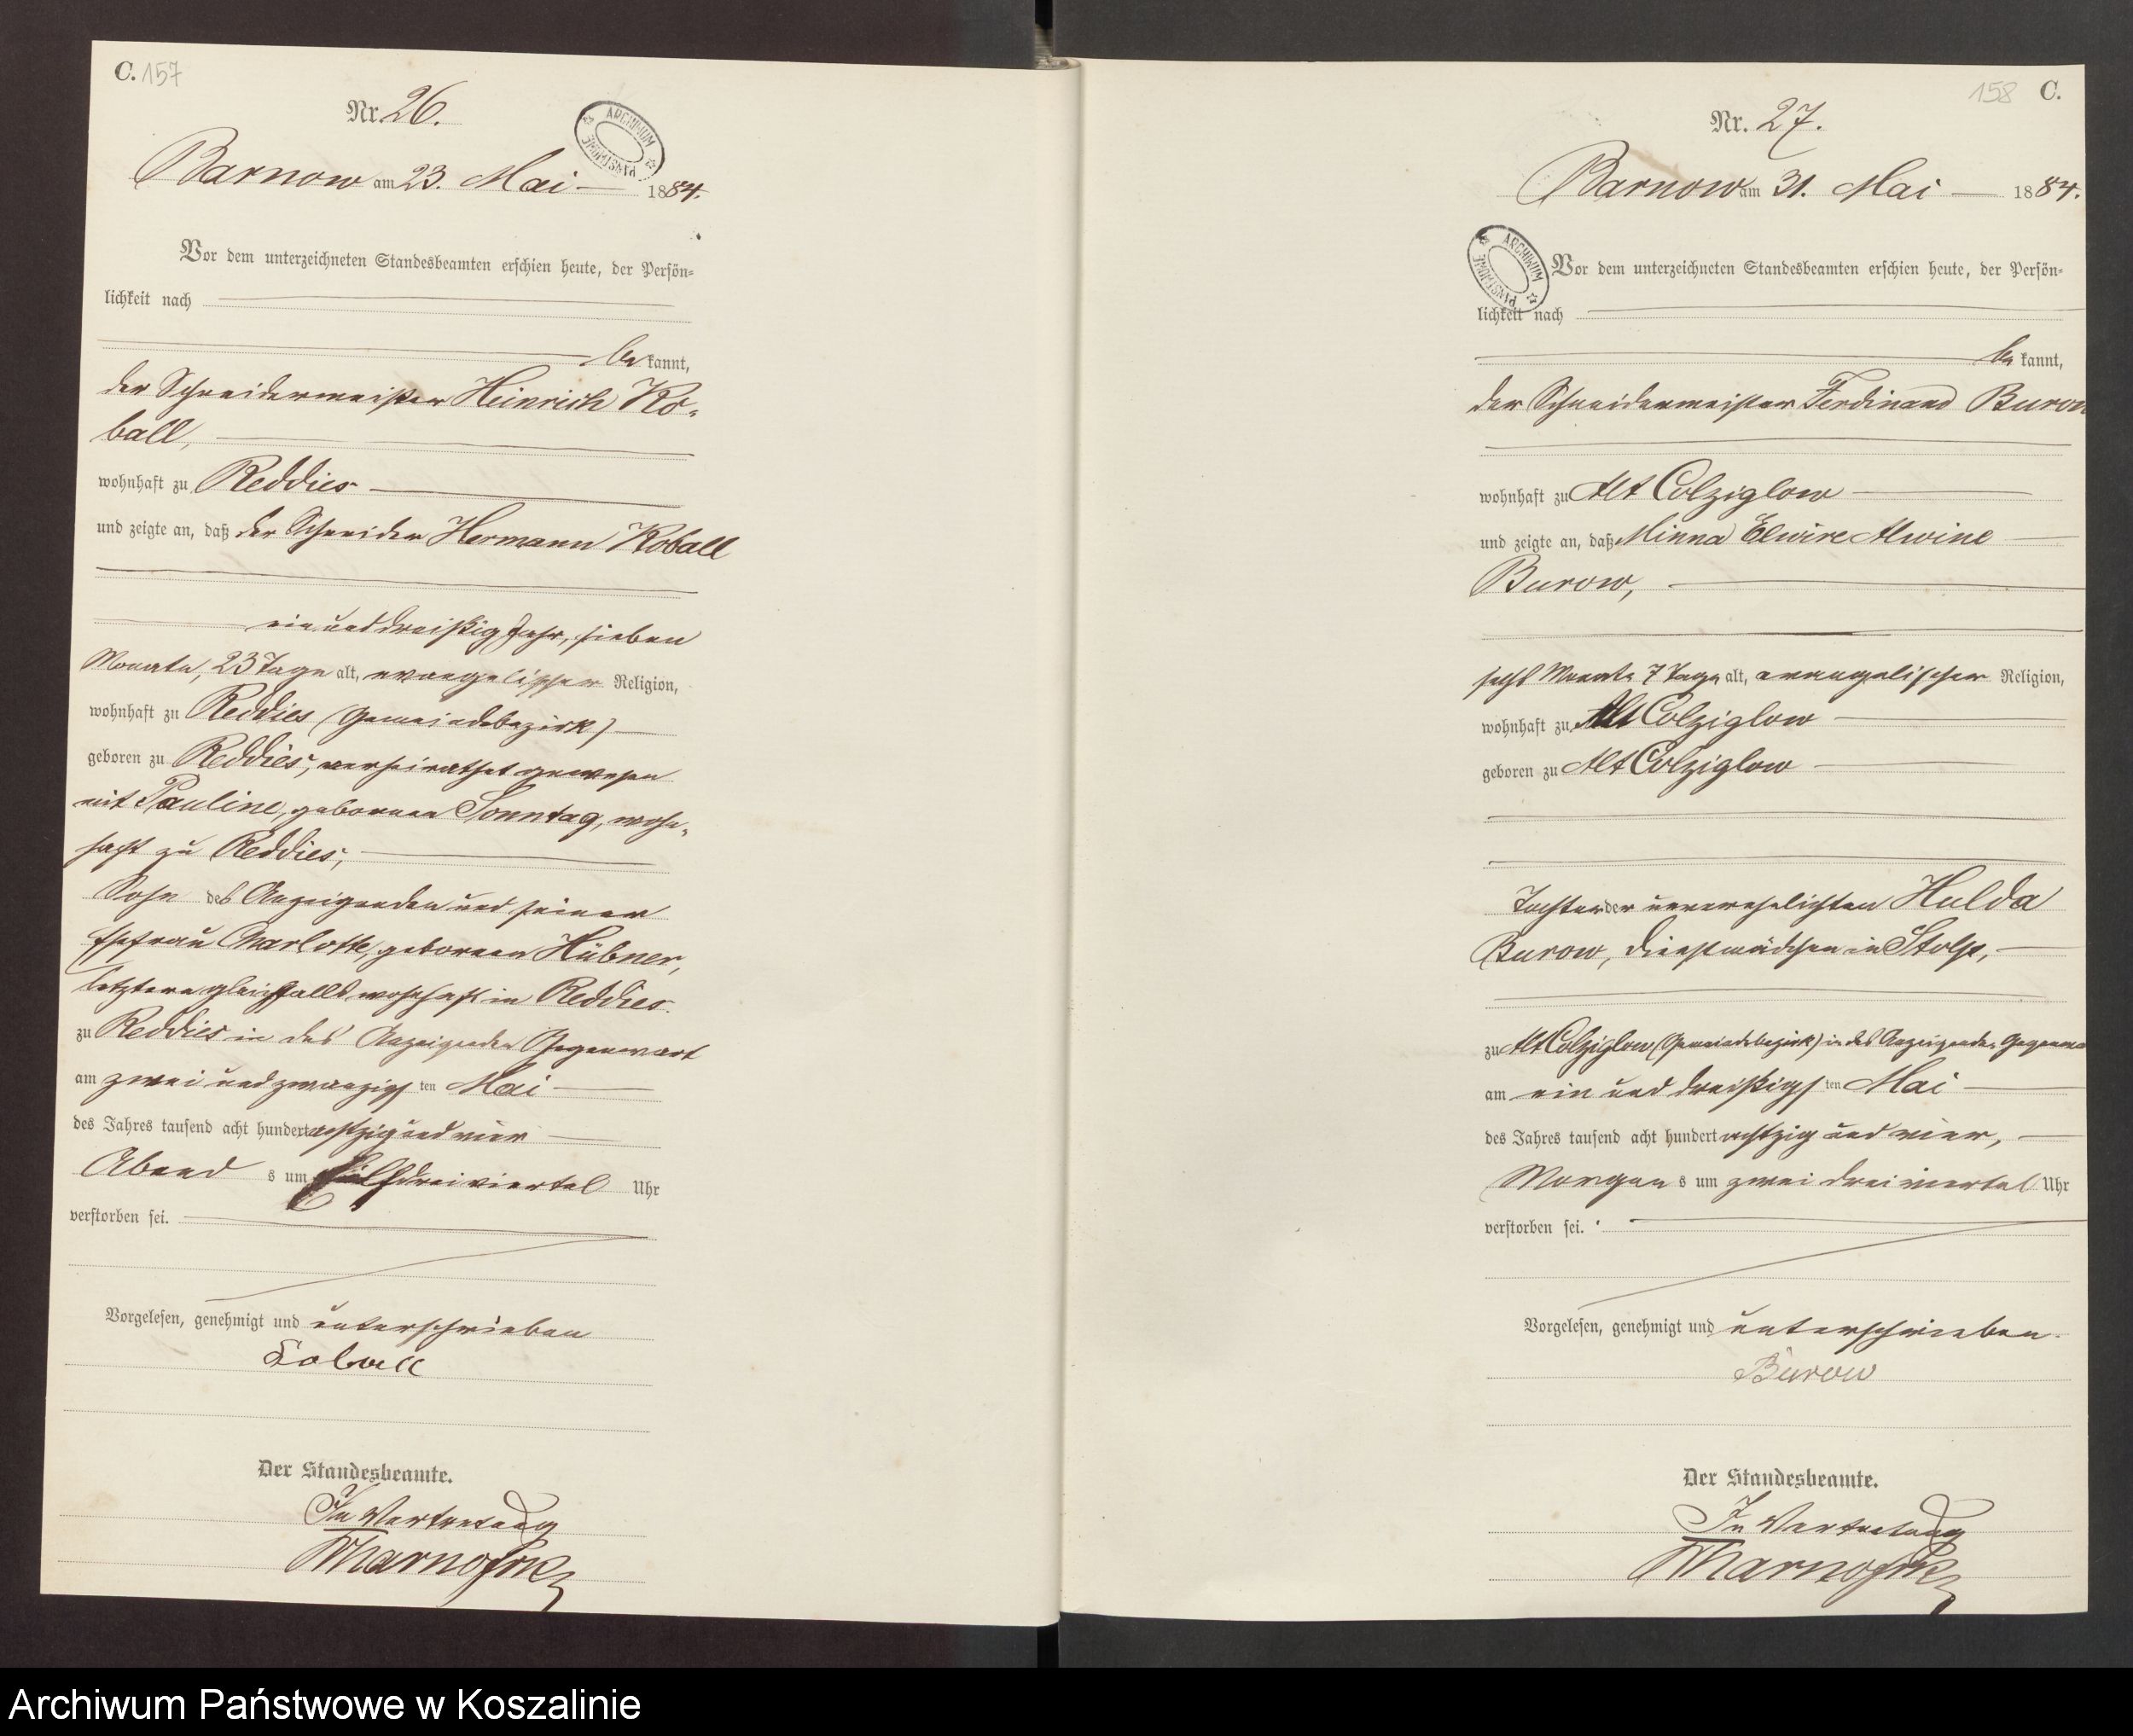 C. 157
Nr. 26.
ARCHIWUM PAŃSTWOWE
Barnow am 23. Mai 1884.
Vor dem unterzeichneten Standesbeamten erschien heute, der Persön-
lichkeit nach
be kannt,
der Schneidermeister Heinrich Ko-
ball,
wohnhaft zu Reddies
und zeigte an, daß der Schneider Hermann Koball
ein und dreißig Jahr, sieben
Monate, 23 Tage alt, evangelischer Religion,
wohnhaft zu Reddies (Gemeindebezirk)
geboren zu Reddies, verheirathet gewesen
mit Pauline, geborenen Sonntag, wohn-
haft zu Reddies,
Sohn des Anzeigenden und seiner
Ehefrau Charlotte, geborenen Hübner,
letztere gleichfalls wohnhaft in Reddies.
zu Reddies in des Anzeigenden Gegenwart
am zwei und zwanzigsten Mai
des Jahres tausend acht hundert achtzig und vier
Abend s um Eilfdreiviertel Uhr
verstorben sei.
Vorgelesen, genehmigt und unterschrieben
Koball
Der Standesbeamte.
In Vertretung
158 C.
Nr. 27.
Barnow am 31. Mai 1884.
ARCHIWUM PAŃSTWOWE
Vor dem unterzeichneten Standesbeamten erschien heute, der Persön-
lichkeit nach
be kannt,
der Schneidermeister Ferdinand Burow
wohnhaft zu Alt Colziglow
und zeigte an, daß Minna Elwire Alwine
Burow,
sechs Monate 7 Tage alt, evangelischer Religion,
wohnhaft zu Alt Colziglow
geboren zu Alt Colziglow
Tochter der unverehelichten Hulda
Burow, Dienstmädchen in Stolp,
zu Alt Colziglow (Gemeindebezirk) in des Anzeigenden Gegenwa
am ein und dreißigsten Mai
des Jahres tausend acht hundert achtzig und vier,
Morgen s um zwei dreiviertel Uhr
verstorben sei.
Vorgelesen, genehmigt und unterschrieben.
Burow
Der Standesbeamte.
In Vertretung
Archiwum Państwowe w Koszalinie